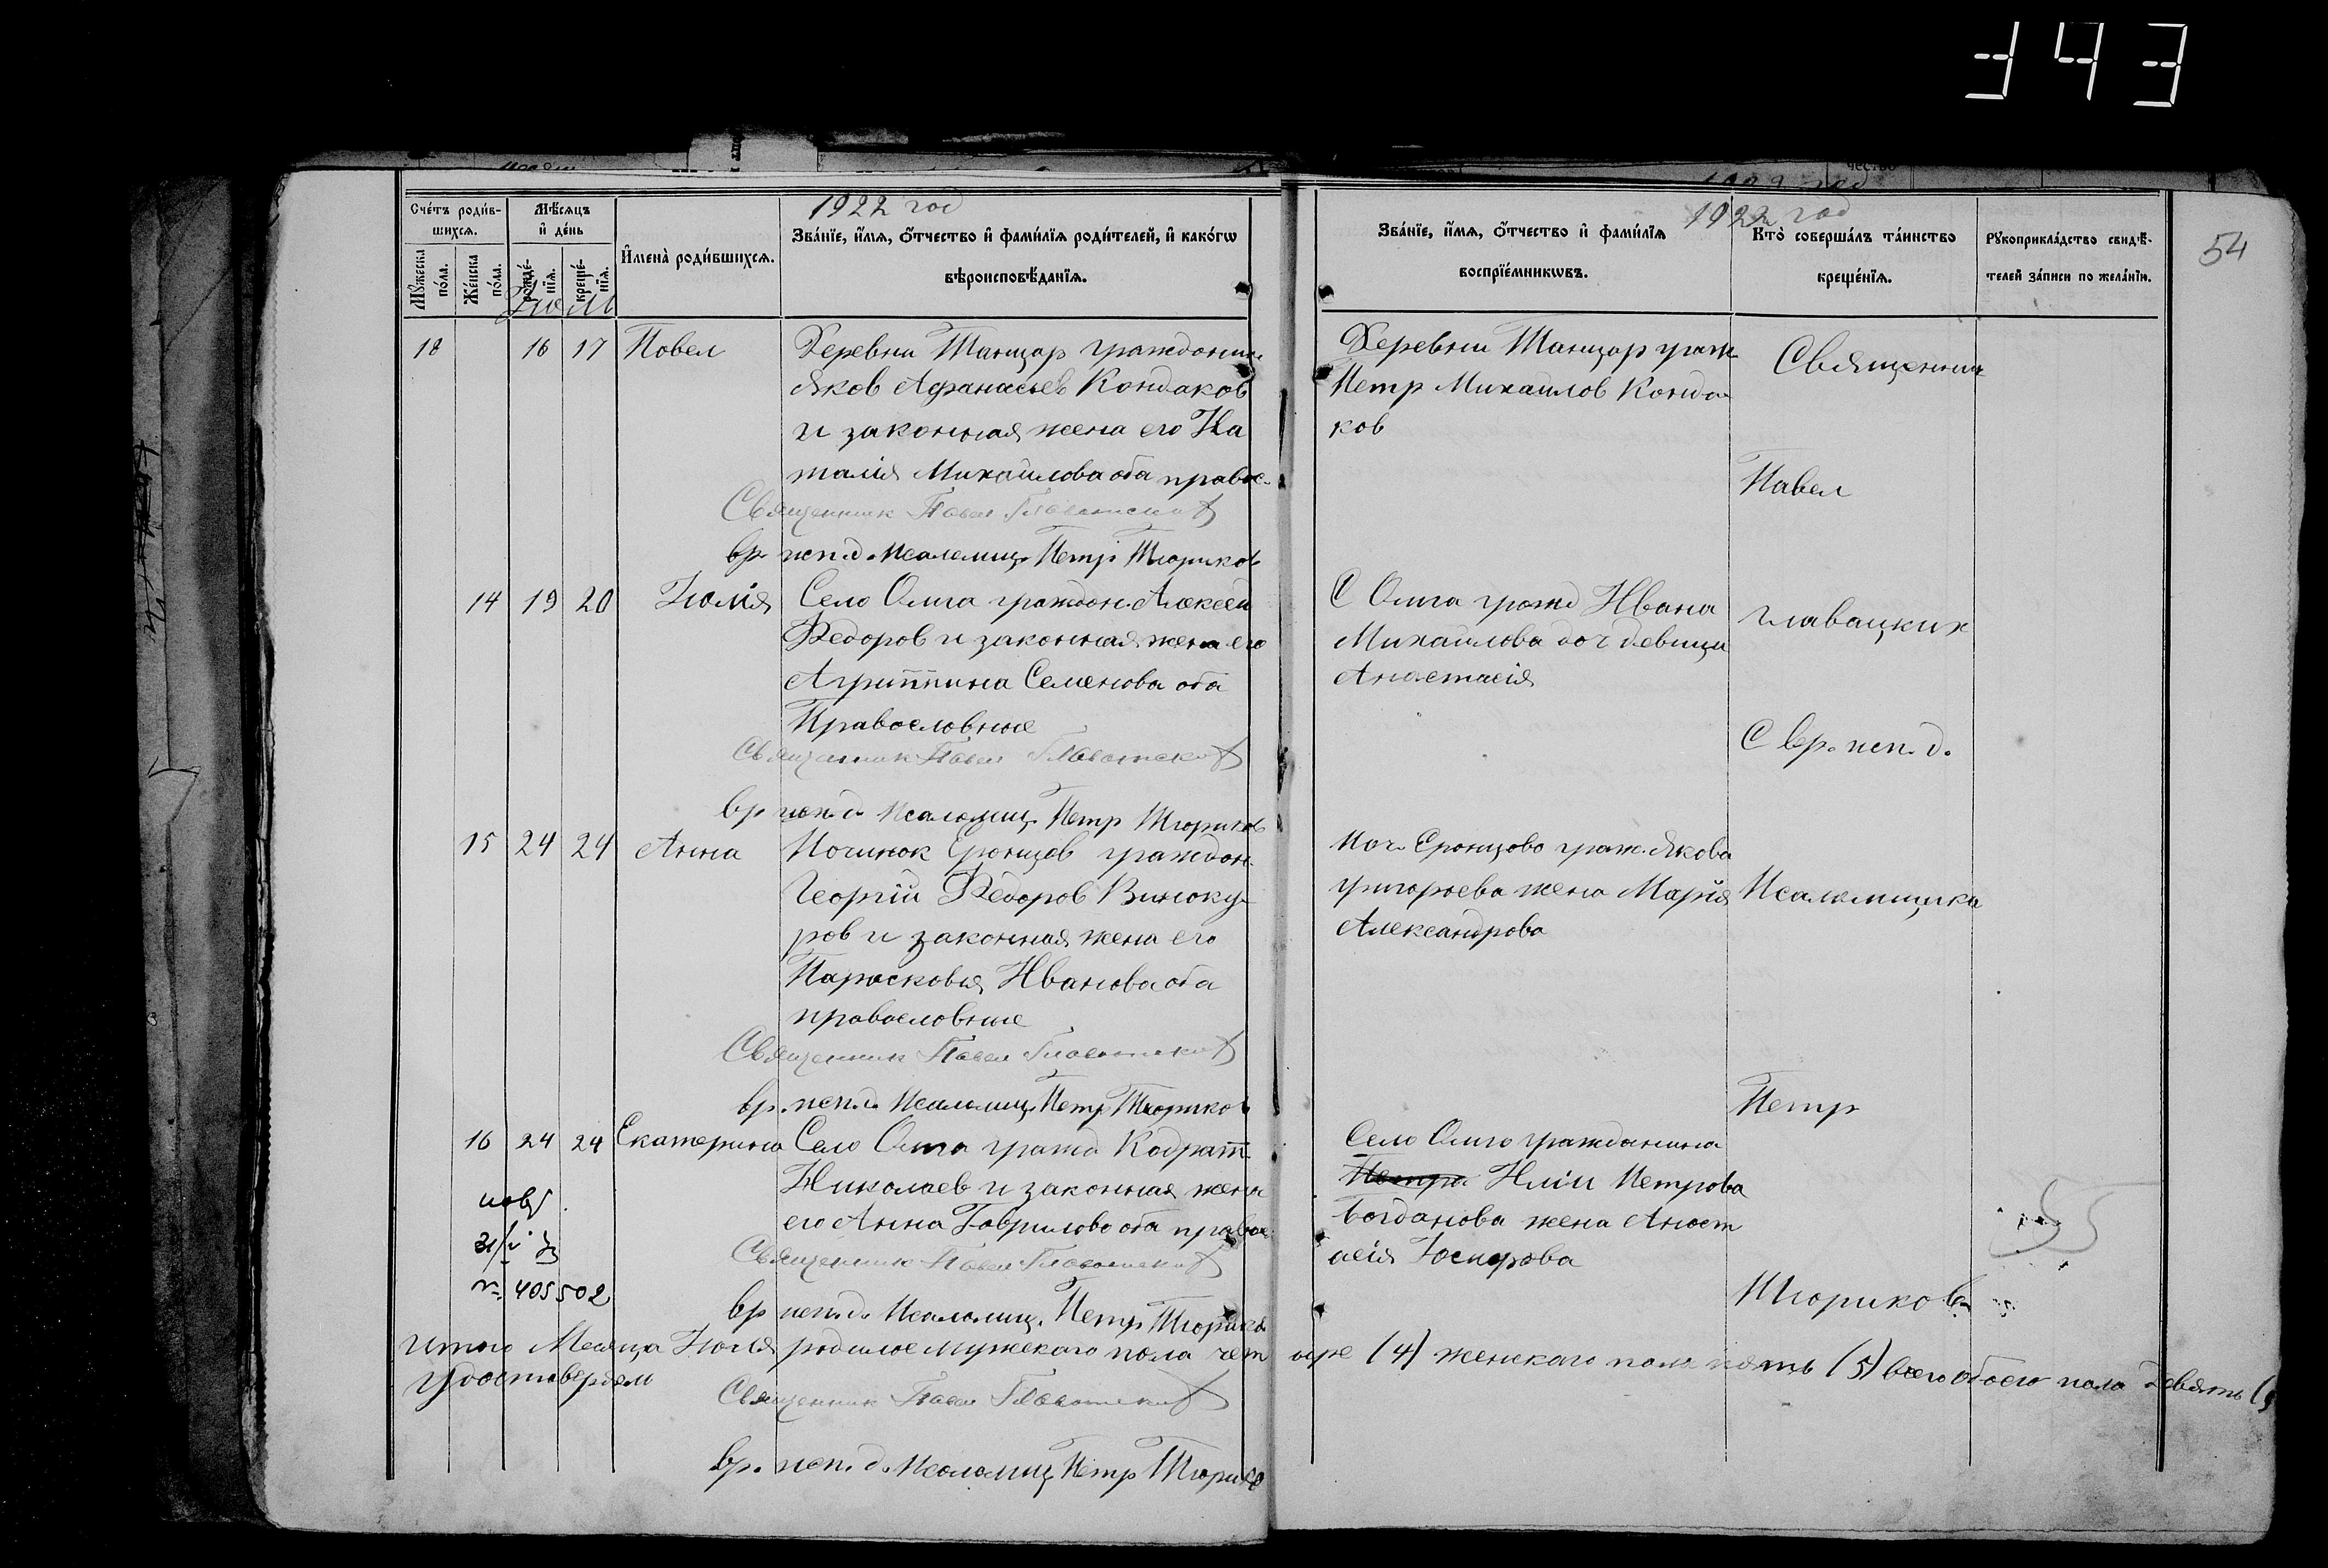 343
1922 год
1922 год
54
Счетъ родившихся.
Мѣсяцъ и день
Имена родившихся.
Званіе, имя, отчество и фамилія родителей, и какогω вѣроисповѣданія.
Званіе, имя, отчество и фамилія воспріемникωвъ.
Кто совершалъ таинство крещенія.
Рукоприкладство свидѣтелей записи по желанію.
Мужеска пола.
Женска пола.
рожденія.
крещенія.
18 16 17 Павел
Деревни Танцар гражданин
Яков Афанасьев Кондаков
и законная жена его На
талія Михайлова оба правос-
Священник Павел Главатских
вр исп.д. Псаломщ. Петр Тюриков
Деревни Танцар граж
Петр Михайлов Конда
ков
Священник
Павел
14 19 20 Юлія
Село Олига граждан. Алексей
Федоров и законная жена его
Агриппина Семенова оба
Православные
Священник Павел Главатских
вр исп.д. Псаломщ. Петр Тюриков
С Олига гражд Ивана
Михайлова доч девица
Анастасія
Главацких
С вр. исп. д.
15 24 24 Анна
Починок граждан.
Георгій Федоров Виноку-
ров и законная жена его
Парасковья Иванова оба
православные
Священник Павел Главатских
вр. исп.д. Псаломщ. Петр Тюриков
Поч. граж. Якова
Григорьева жена Марія
Александрова
Псаломщика
Петр
16 24 24 Екатерина
Село Олига гражд Кодрат
Николаев и законная жена
его Анна Гаврилова оба правос.
Священник Павел Главатских
вр исп.д. Псаломщ. Петр Тюриков
Село Олига гражданина
Петра Иліи Петрова
Богданова жена Анаст
асія
Тюриков
№ 405502
55
Итого Месяца Июля родилос мужскаго пола четыре (4) женскаго пола пять (5) всего обоего пола Девять (9
Удостоверяем
Священник Павел Главатских
вр. исп. д. Псаломщ Петр Тюриков